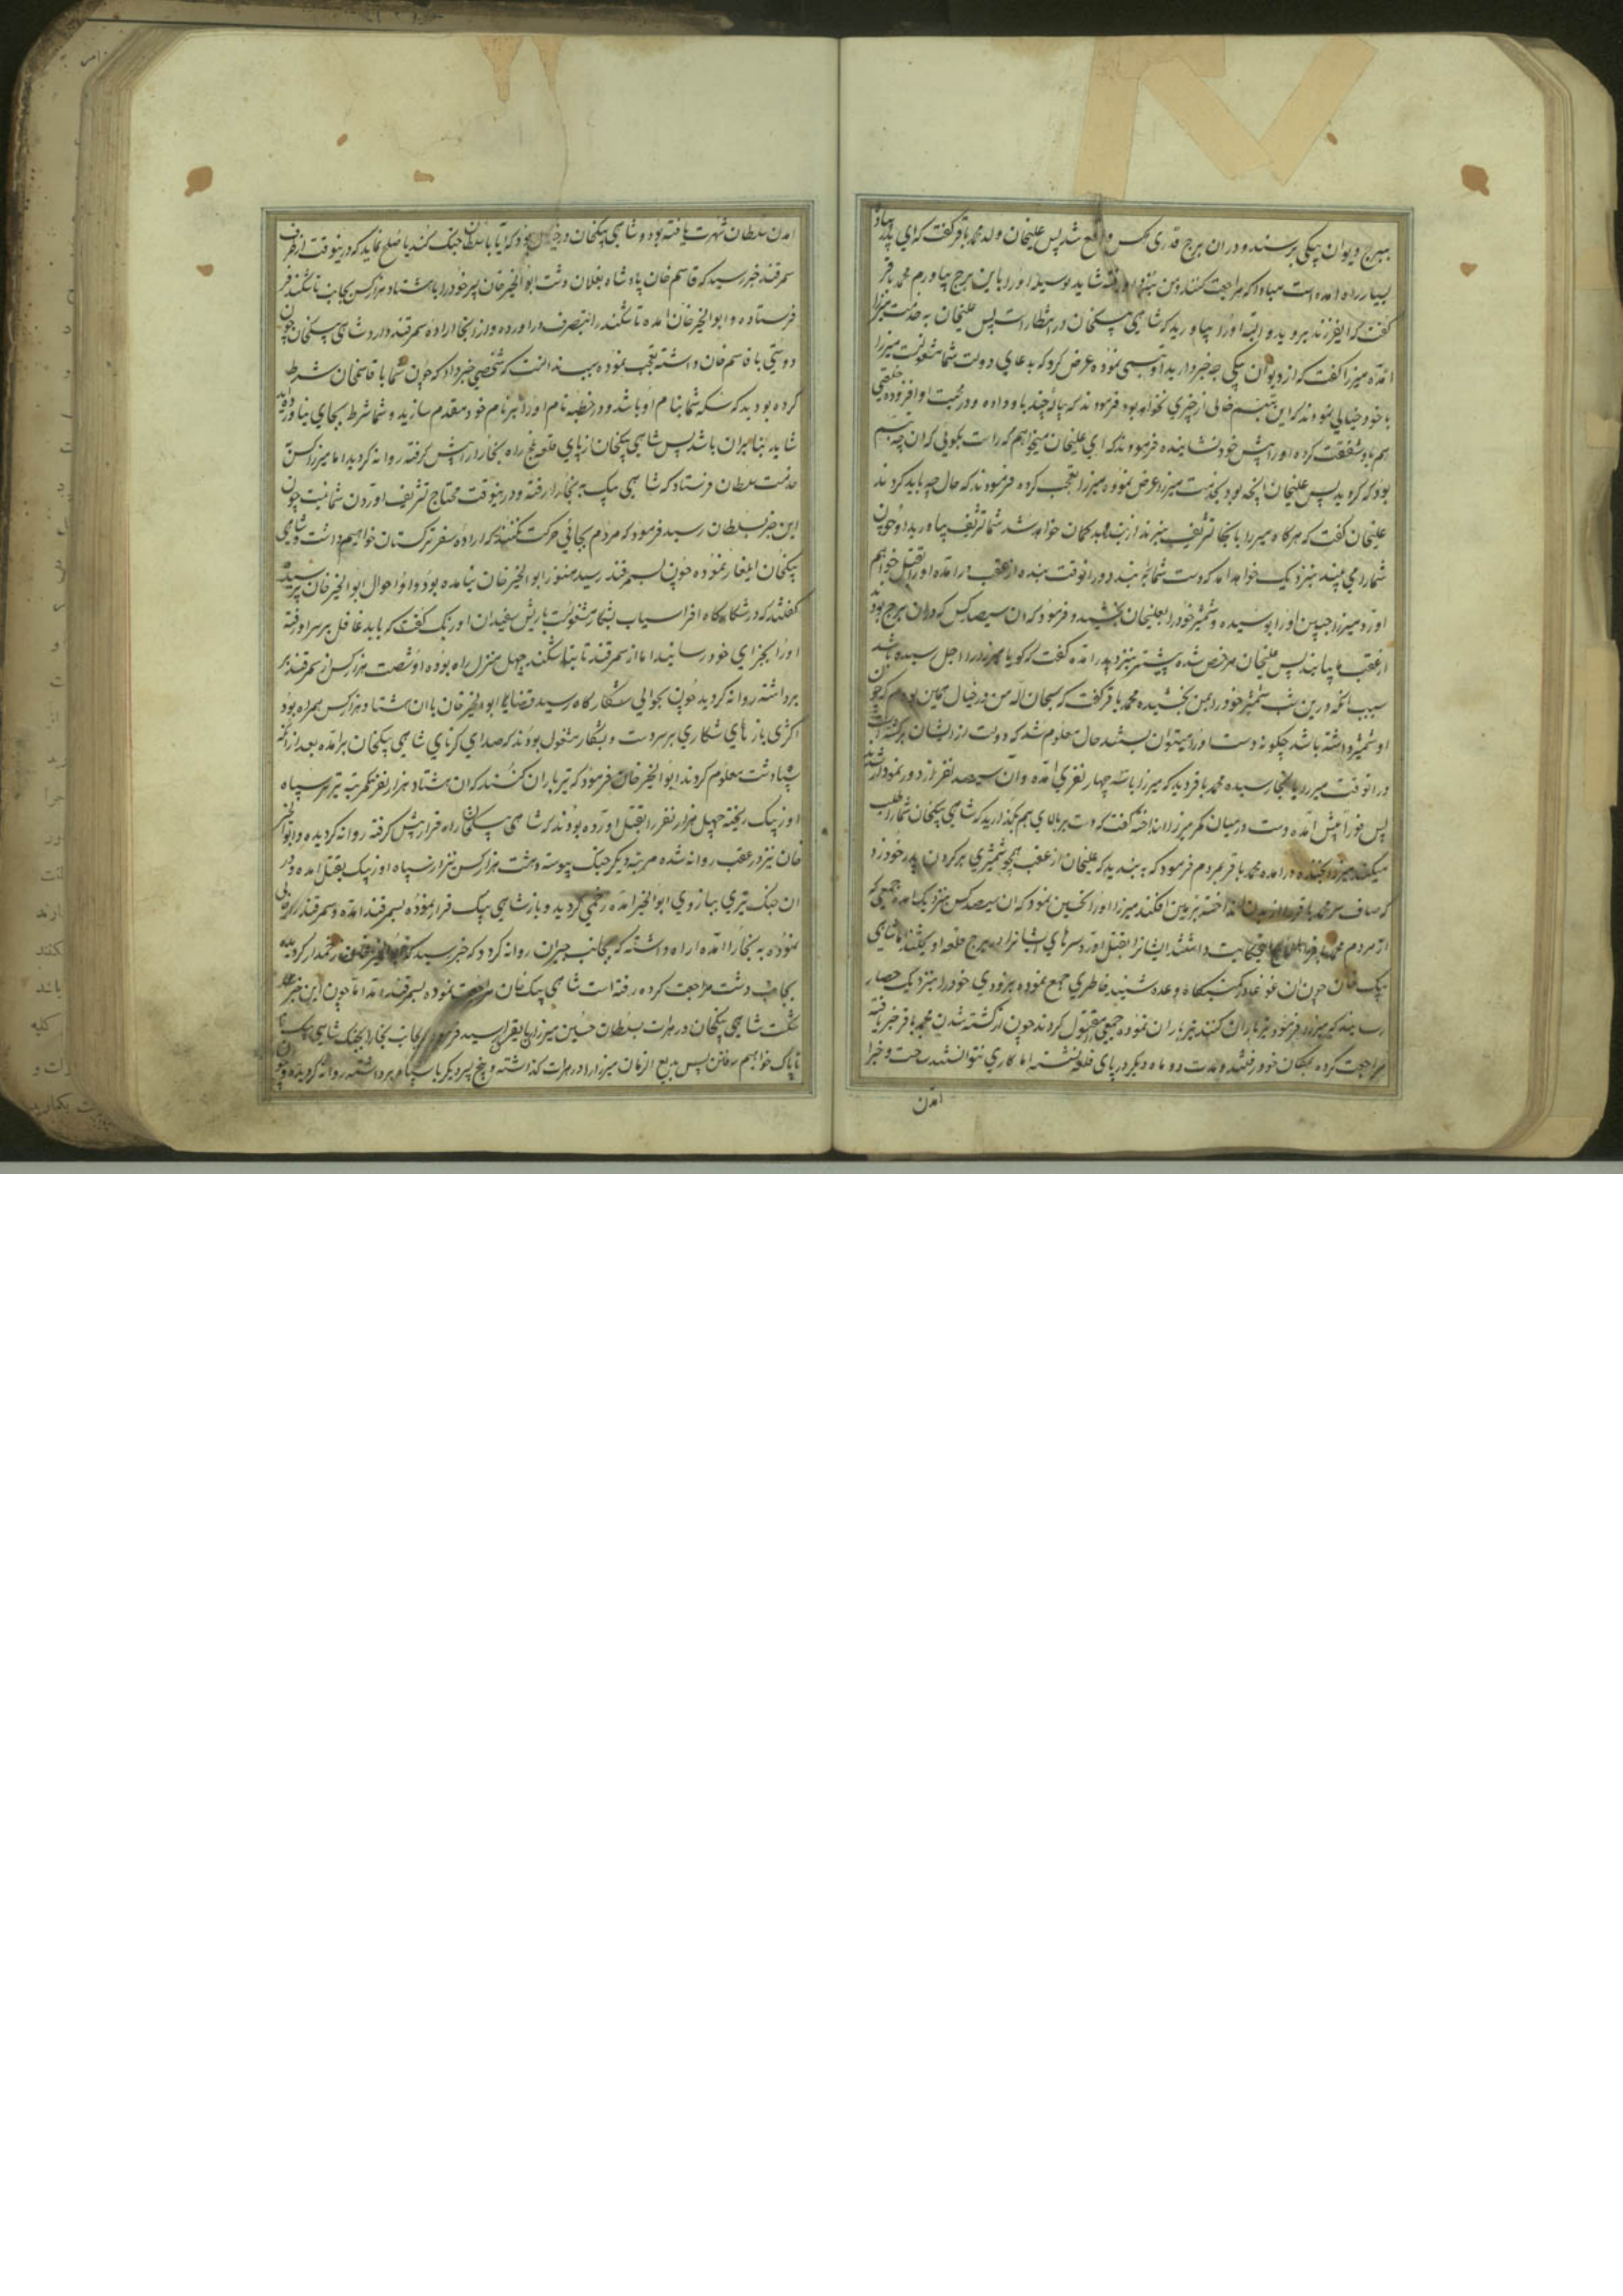 ببرج دیوان بیکی برسند و در ان برج قدری کس واقع شد پس علیخان ولد محمد باقر کفت که ای پدر
بسیار راه امده است مبادا که مراجعت کنند من بنزد او رفته شاید بوسیله او را باین برج بیاورم محمد باقر
کفت که ای فرزند برو البته او را بیاورید که شاهی بیکخان در انتظار است پس علیخان به خدمت میرزا
امده میرزا کفت که از دیوان بیکی چه خبر دارید او تبسمی نموده عرض کرد که بدعای دولت شما مشغولست میرزا
با خود خیالی نمودند که این تبسم خالی از چیزی نخواهد بود فرمودند که پیاله چند باو داده و در محبت او افزوده
هم باو شفقت کرده او را پیش خود نشانیده فرمودند که ای علیخان میخواهم که راست بکویی که ان چه تبسم
بود که کردید پس علیخان انچه بود بخدمت میرزا عرض نموده میرزا تعجب کرده فرمودند که حال چه باید کرد
علیخان کفت که هرکاه میرزا بانجا تشریف نبرند از بنده بدکمان خواهد شد شما تشریف بیاورید و چون
شما را می بیند بنزدیک خواهد امد که دست شما بند در انوقت بنده از عقب درامده او را بقتل خواهم
اورد میرزا جبین او را بوسیده و شمشیر خود را بعلیخان بخشیده و فرمود که ان سیصد کس که در ان برج بود
از عقب ما بیایند پس علیخان مرخص شده پیشتر بنزد پدر امده کفت که کویا میرزا را اجل رسیده باشد
سبب انکه درین شب شمشیر خود را بمن بخشیده محمد باقر کفت که سبحان الله من در خیال همین بودم که چون
او شمشیر داشته باشد چکونه دست او را میتوان بست حال معلوم شد که دولت از ایشان برکشته است
در انوقت میرزا بانجا رسیده محمد باقر دید که میرزا با سه چهار نفری امده و ان سیصد نفر از دور نمودار شدند
پس فورا پیش امده دست در میان کمر میرزا انداخته کفت که دست بر بالای هم بکذارید که شاهی بیکخان شما را طلب
میکند میرزا بخنده درامده محمد باقر بمردم فرمود که به بندید که علیخان از عقب همچو شمشیری بر کردن پدر خود زد
که صاف سر محمد باقر را از بدن انداخته بزمین افکند میرزا او را تحسین نمود که ان سیصد کس بنزدیک امده جمعی که
از مردم محمد باقر حکایت داشتند ایشانرا بقتل اورد سرهای ایشانرا از برج قلعه اویختند اما شاهی
بیک خان چون ان غوغا در کمینکاه وعده شنید خاطری جمع نموده بزودی خود را بنزدیک حصار
رسانید که میرزا فرمود تیرباران کنند تیرباران نموده جمعی مقتول کردند چون از کشته شدن محمد باقر خبر یافته
مراجعت کرده بمکان خود رفتند و مدت دو ماه دیکر در پای قلعه نشسته اما کاری نتوانستند ساخت و خبر
امدن
امدن سلطان شهرت یافته بود و شاهی بیکخان در خیال بود که ایا با سلطان جنک کند یا صلح نماید که درینوقت از طرف
سمرقند خبر رسید که قاسم خان پادشاه بغلان دشت ابو الخیر خان پسر خود را با هشتاد هزار کس بجانب تاشکند
فرستاده و ابو الخیر خان امده تاشکند را بتصرف دراورده و از انجا اراده سمرقند دارد شاهی بیکخان چون
دوستی با قاسم خان داشته تعجب نموده بسیار که شخصی خبر داد که چون شما با قاسمخان شرط
کرده بودید که سکه شما بنام او باشد و در خطبه نام او را بر نام خود مقدم سازید و شما شرط بجای نیاوردید
شاید بنابران باشد پس شاهی بیکخان از پای قلعه راه بخارا را پیش کرفته روانه کردید اما میرزا کس
خدمت سلطان فرستاد که شاهی بیک به بخارا رفته و درینوقت محتاج تشریف اوردن شما نیست چون
این خبر بسلطان رسید فرمود که مردم بجائی حرکت نکنند که اراده سفر ترکستان خواهیم داشت و شاهی
بیکخان ایلغار نموده چون بسمرقند رسید هنوز ابو الخیر خان نیامده بود و او احوال ابو الخیر خان پرسید
کفتند که در شکارکاه افراسیاب بشکار مشغولست باریش سفیدان اوزبک کفت که باید غافل بر سر او رفته
او را بجزای خود رسانید اما از سمرقند تا بتاشکند چهل منزل راه بوده او شصت هزار کس از سمرقند بر
برداشته روانه کردید چون بحوالی شکارکاه رسید قضا را ابو الخیر خان با ان هشتاد هزار کس همراه بود
اکثری بازهای شکاری بر سر دست و بشکار مشغول بودند که صدای کرنای شاهی بیکخان برامده بعد از انکه
سپاه دشت معلوم کردند ابو الخیر خان فرمود که تیرباران کنند که ان هشتاد هزار نفر یکمرتبه تیر بر سپاه
اوزبک ریخته چهل هزار نفر را بقتل اورده بودند که شاهی بیکخان راه فرار پیش کرفته روانه کردیده و ابو الخیر
خان نیز در عقب روانه شده مرتبه دیکر جنک پیوسته و هشت هزار کس نیز از سپاه اوزبک بقتل امده و در
ان جنک تیری ببازوی ابو الخیر امده زخمی کردید و باز شاهی بیک فرار نموده بسمرقند امده و سمرقند را
نموده به بخارا امده اراده داشته که بجانب جیران روانه کردد که خبر رسید که ابو الخیر خان زخمدار کردیده
بجانب دشت مراجعت کرده رفته است شاهی بیک خان مراجعت نموده بسمرقند امد اما چون این خبر
شکست شاهی بیکخان در هرات بسلطان حسین میرزا بایقرا رسید فرمود که بجانب بخارا بجنک شاهی بیک
ناپاک خواهیم رفتن پس بدیع الزمان میرزا را در هرات کذاشته و پنج پسر دیکر با سپاه برداشته روانه کردیده و چون